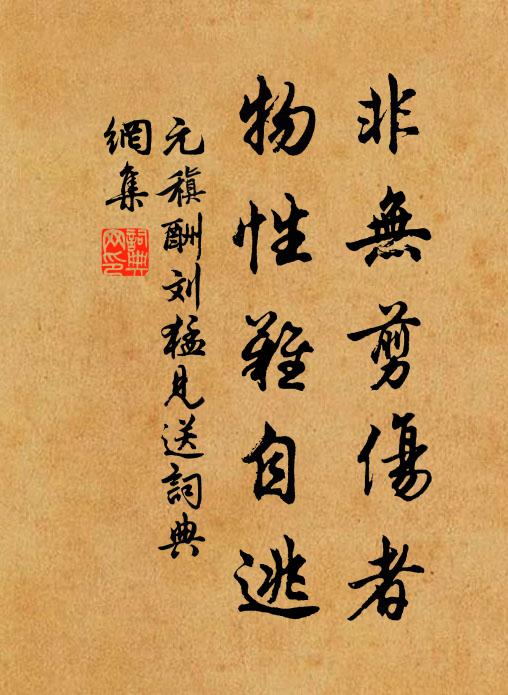 非無剪傷者
物性難自逃
元稹酬刘猛見送詞典
網集
詞典
网印